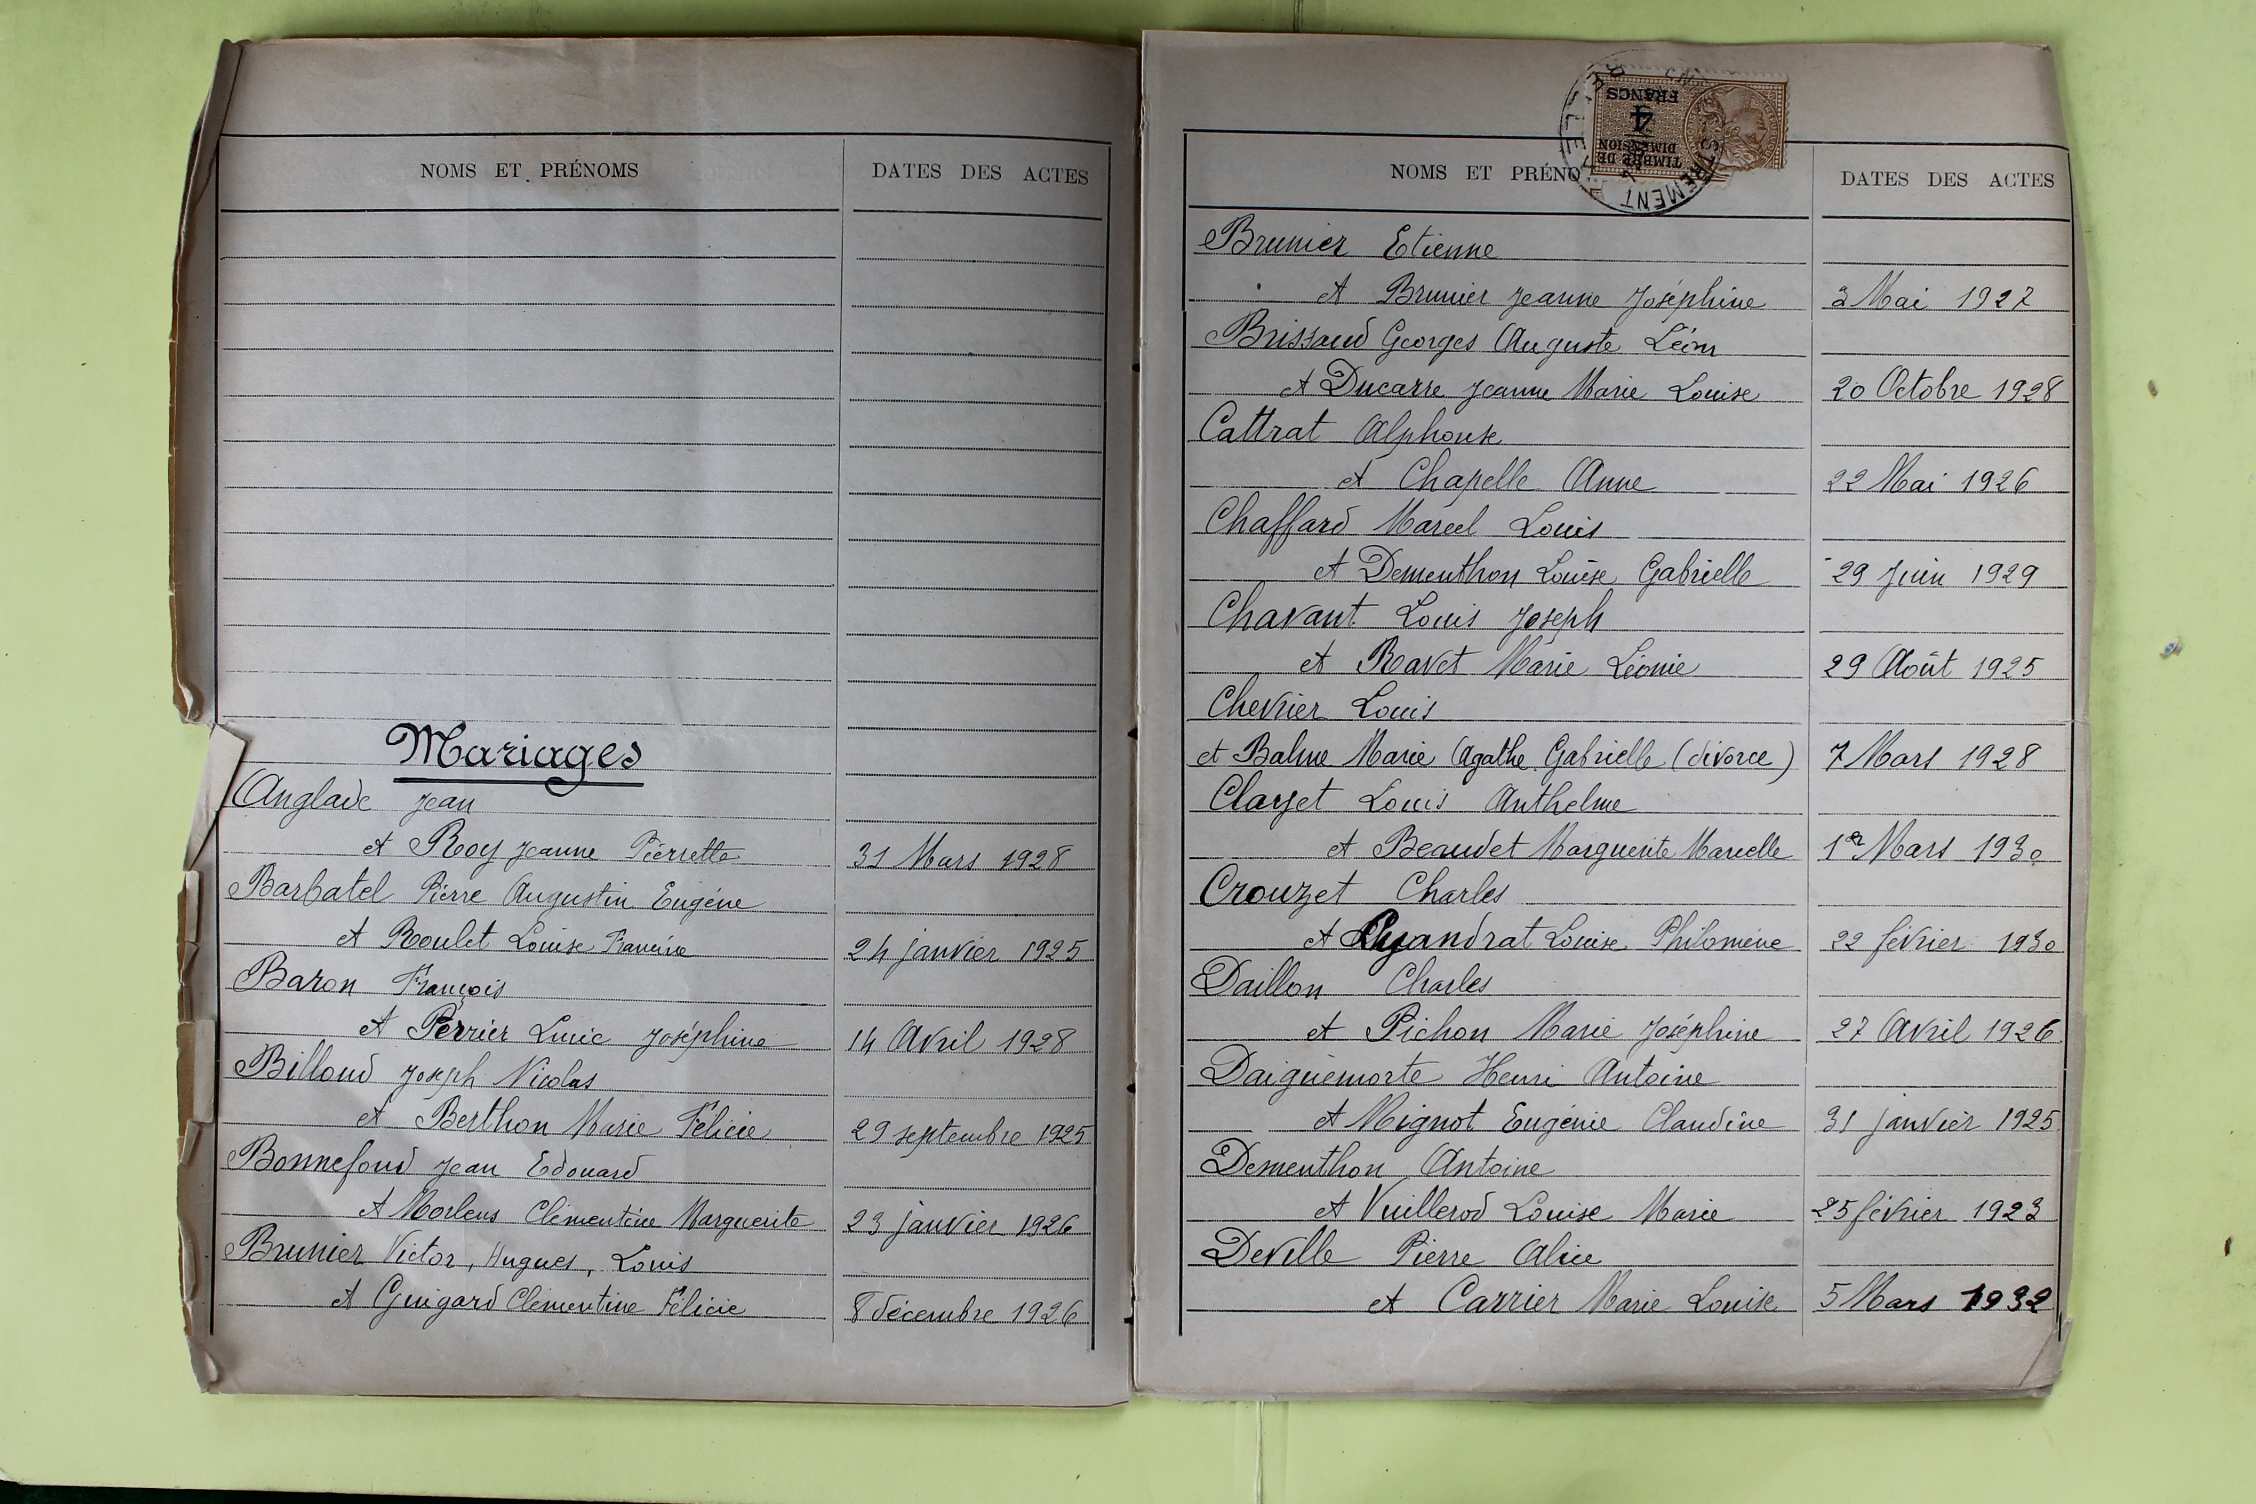 NOMS ET PRÉNOMS DATES DES ACTES
Mariages
Anglade Jean
et Roy Jeanne Pierrette 31 Mars 1928
Barbatel Pierre Augustin Eugène
et Roulet Louise Francine 24 janvier 1925
Baron François
et Perrier Lucie Joséphine 14 Avril 1928
Billoud Joseph Nicolas
et Berthon Marie Félicie 29 septembre 1925
Bonnefond Jean Edouard
et Morlens Clémentine Marguerite 23 janvier 1926
Brunier Victor, Hugues, Louis
et Guigard Clémentine Félicie 8 décembre 1926
TIMBRE DE DIMENSION
4 FRANCS
NOMS ET PRÉNO DATES DES ACTES
Brunier Etienne
et Brunier Jeanne Joséphine 3 Mai 1927
Brissaud Georges Auguste Léon
et Ducarre Jeanne Marie Louise 20 Octobre 1928
Cattrat Alphonse
et Chapelle Anne 22 Mai 1926
Chaffard Marcel Louis
et Dementhon Louise Gabrielle 29 Juin 1929
Chavant Louis Joseph
et Ravet Marie Léonie 29 Août 1925
Chevrier Louis
et Balme Marie Agathe Gabrielle (divorce) 7 Mars 1928
Clayet Louis Anthelme
et Beaudet Marguerite Marcelle 1er Mars 1930
Crouzet Charles
et Louise Philomène 22 février 1930
Daillon Charles
et Pichon Marie Joséphine 27 Avril 1926
Daiguemorte Henri Antoine
et Mignot Eugénie Claudine 31 janvier 1925
Dementhon Antoine
et Vuillerod Louise Marie 25 février 1923
Deville Pierre Alice
et Carrier Marie Louise 5 Mars 1932